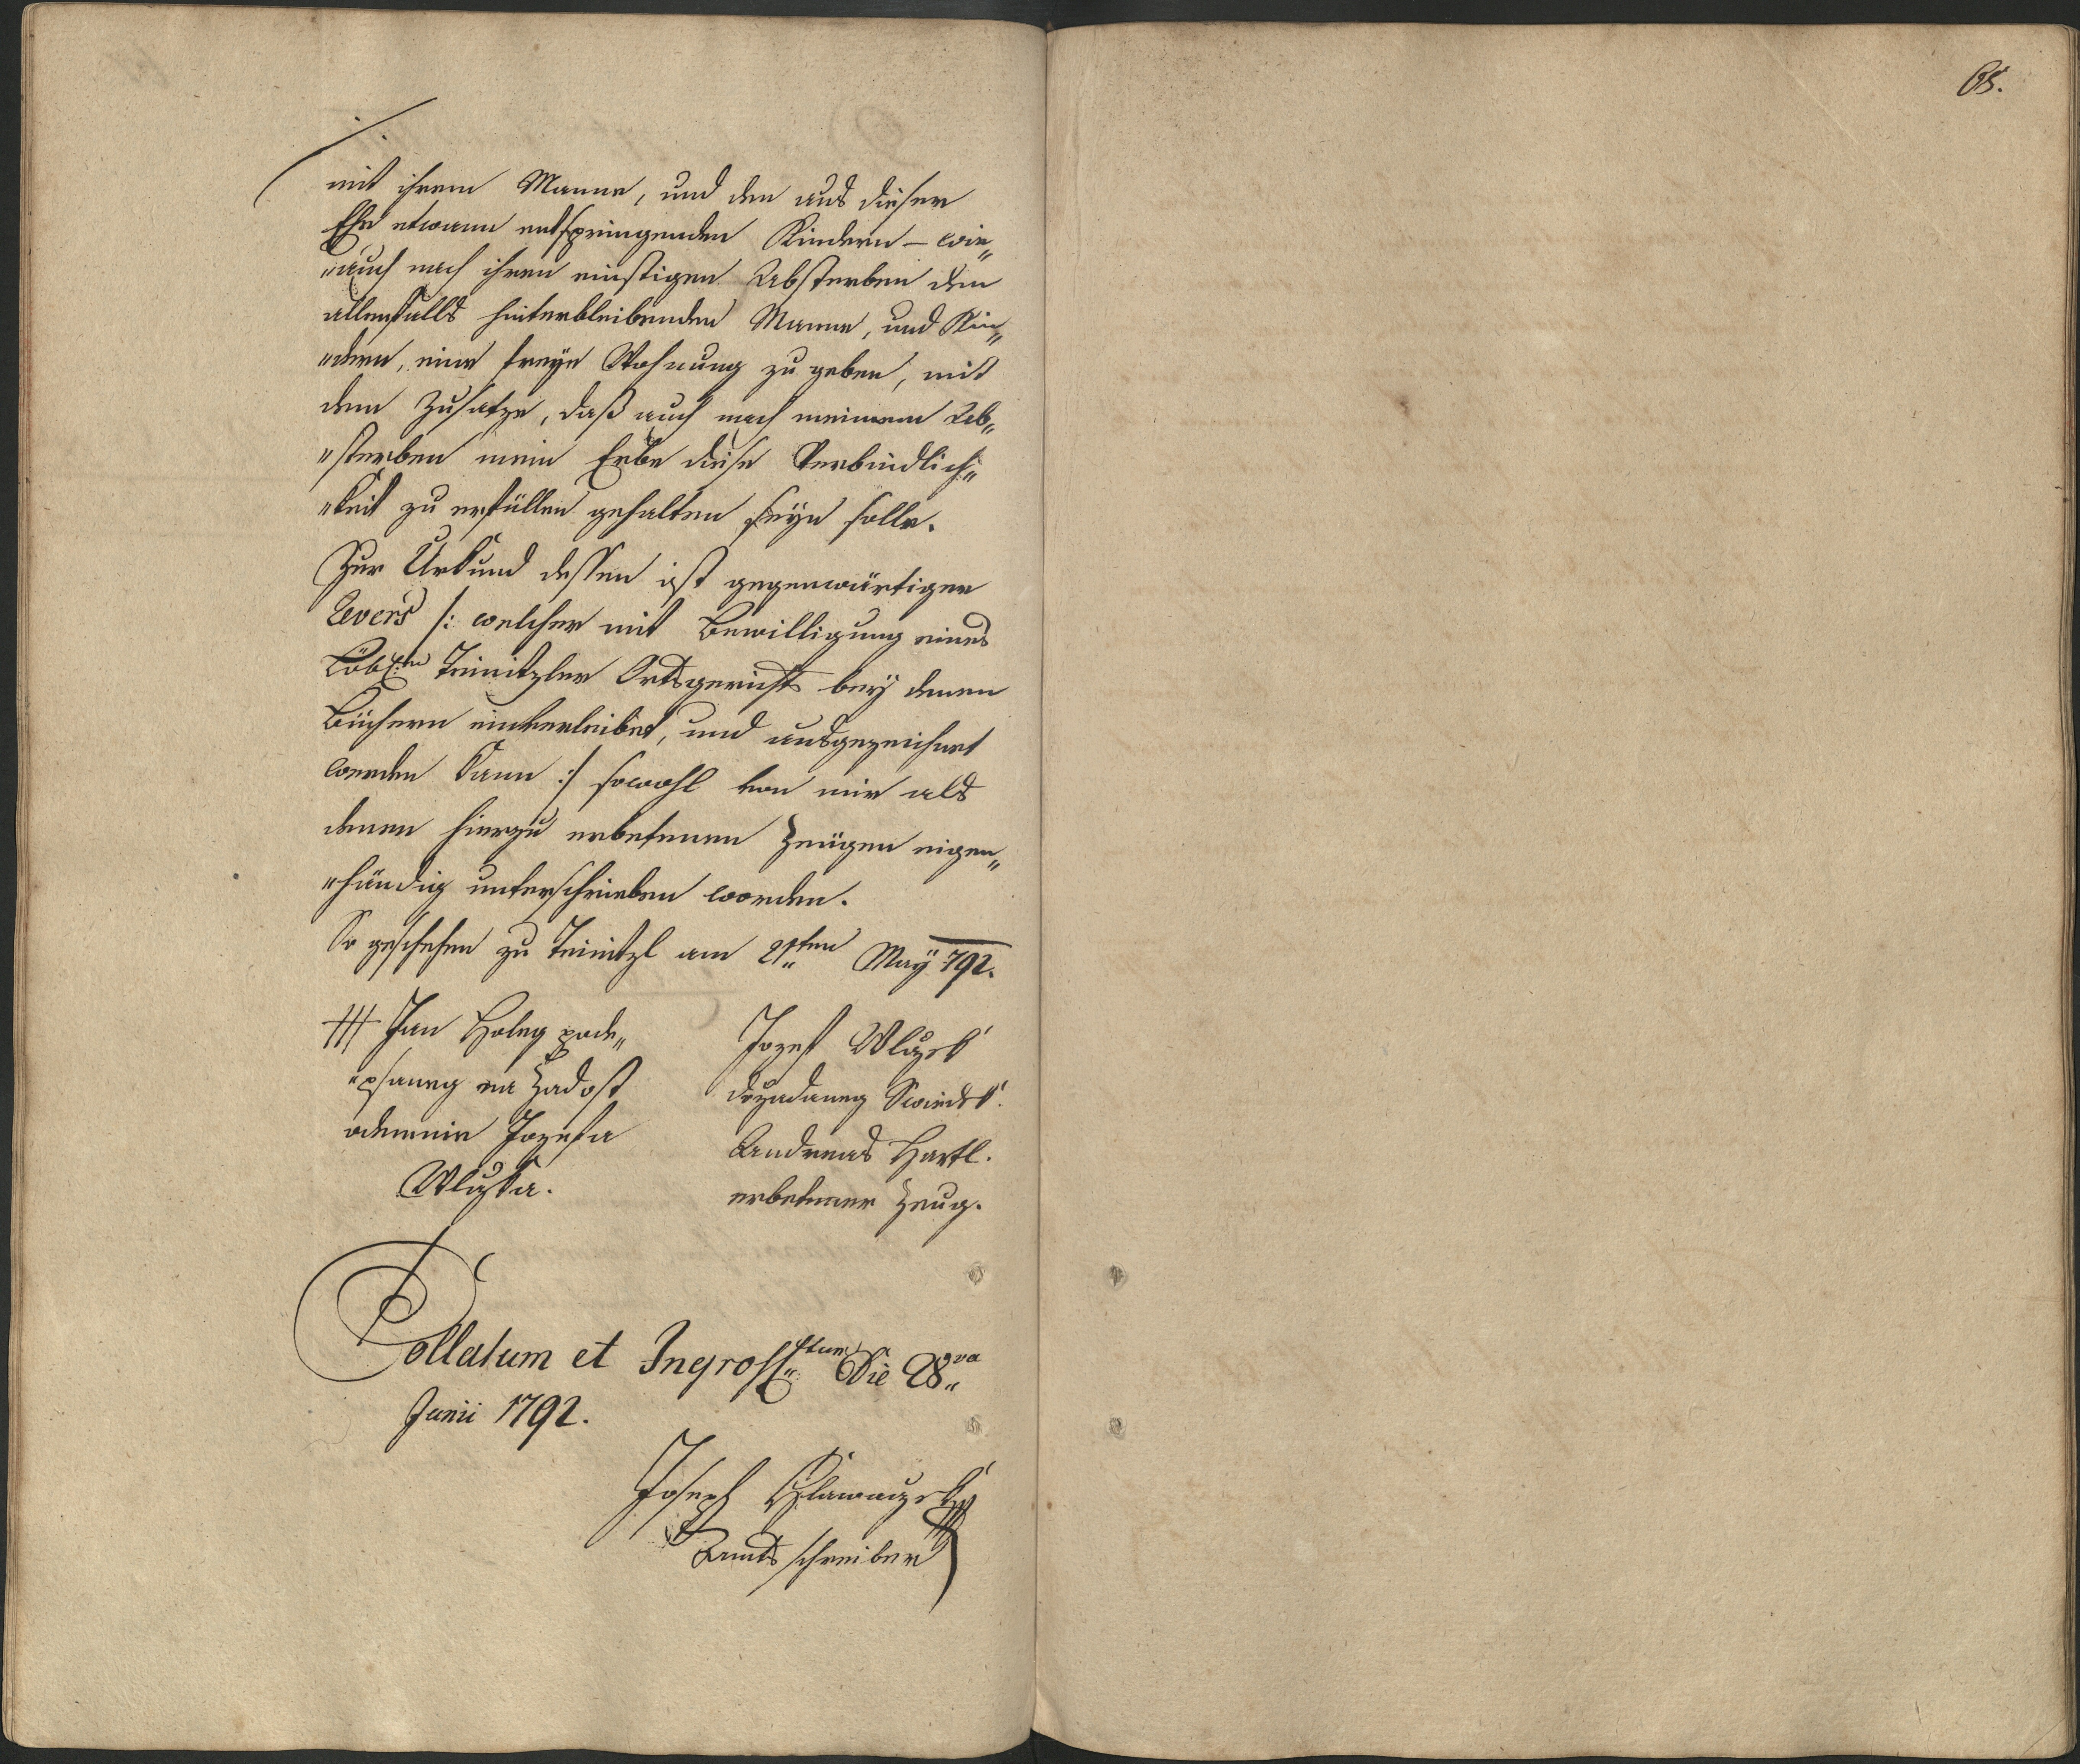 65.
mit ihrem Manne, und den aus dieser
Ehe etwann entspringenden Kindern – wie„
„auch nach ihren einstigen Absterben dem
allenfalls hinterbleibenden Manne, und Kin„
„dern, eine freÿe Wohnung zu geben, mit
dem Zusatze, daß auch nach meinem Ab„
„sterben mein Erbe diese Verbindlich„
„keit zu erfüllen gehalten seÿn solle.
Zur Urkund dessen ist gegenwärtiger
Revers /: welcher mit Bewilligung eines
Löbl:n Teinitzler Ortsgerichts beÿ denen
Büchern einverleibet, und ausgezeichnet
werden kann :/ sowohl von mir als
denen hierzu erbetenen Zeügen eigen„
„händig unterschrieben worden.
So geschehen zu Teinitzl am 21ten Maÿ 792.
+++ Jan Holeg pode„
„psaneg na Zadost
odemnie Jozefa
Wlczka.
Jozef Wlczek
dozadaneg Swiedek.
Andreas Hartl.
erbetener Zeug.
Collatum et Ingross:tum Die 28va
Junii 1792.
Joseph Hlawaczek
Amtsschreiber